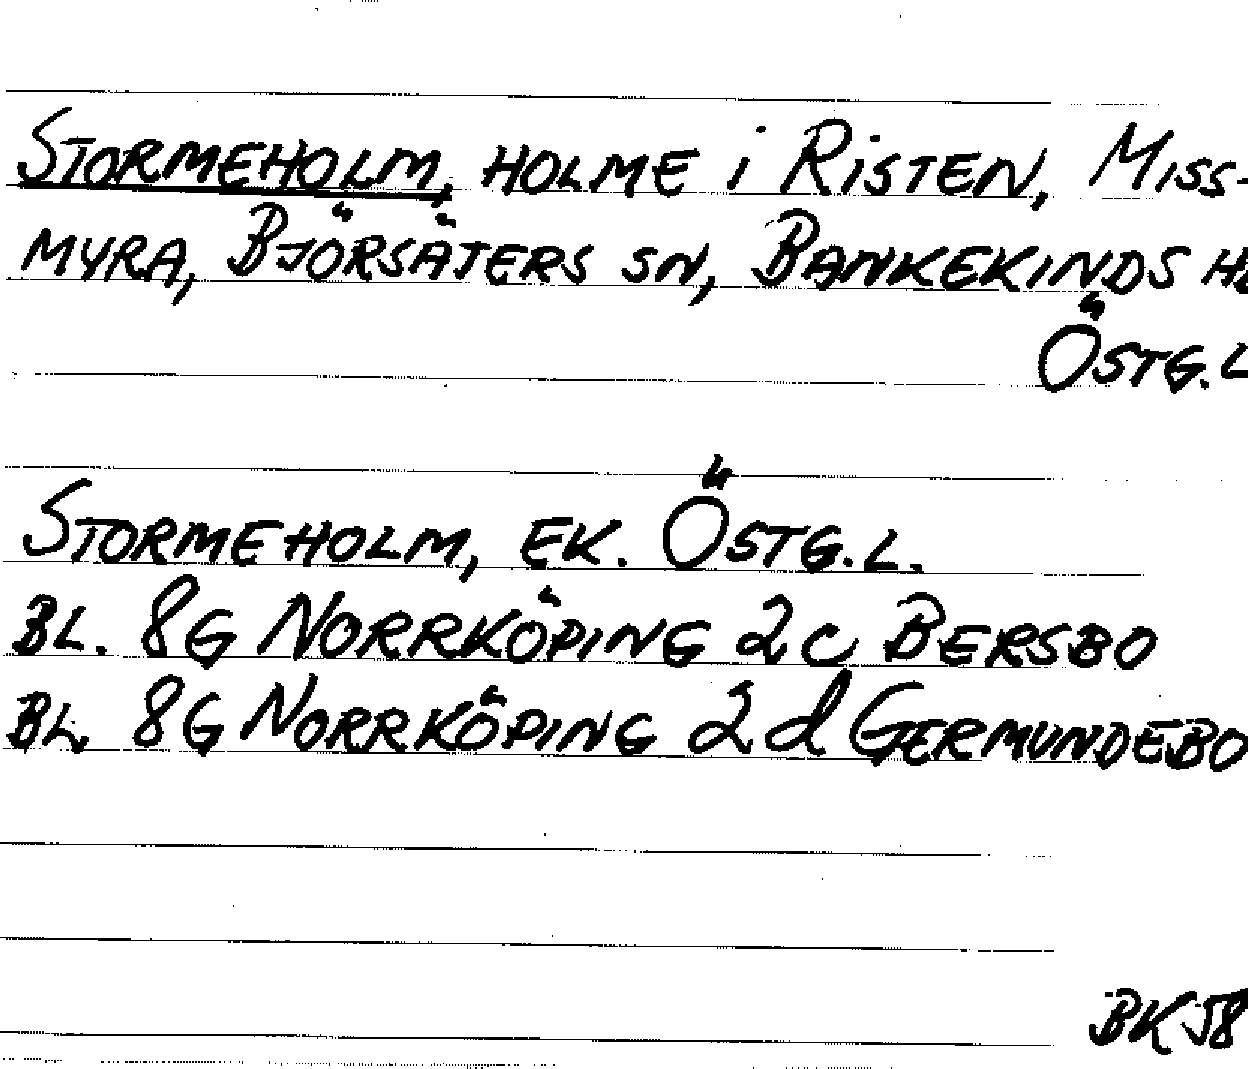 STORMEHOLM, HOLME i RiSTEN, MISS-
MYRA, BJÖRSÄTERS SN, BANKEKINDS HD
ÖSTG.L
STORMEHOLM, EK. ÖSTG.L.
BL. 8G NORRKÖPING 2C BERSBO
BL. 8G NORRKÖPING 2d GERMUNDEBO
BK 58